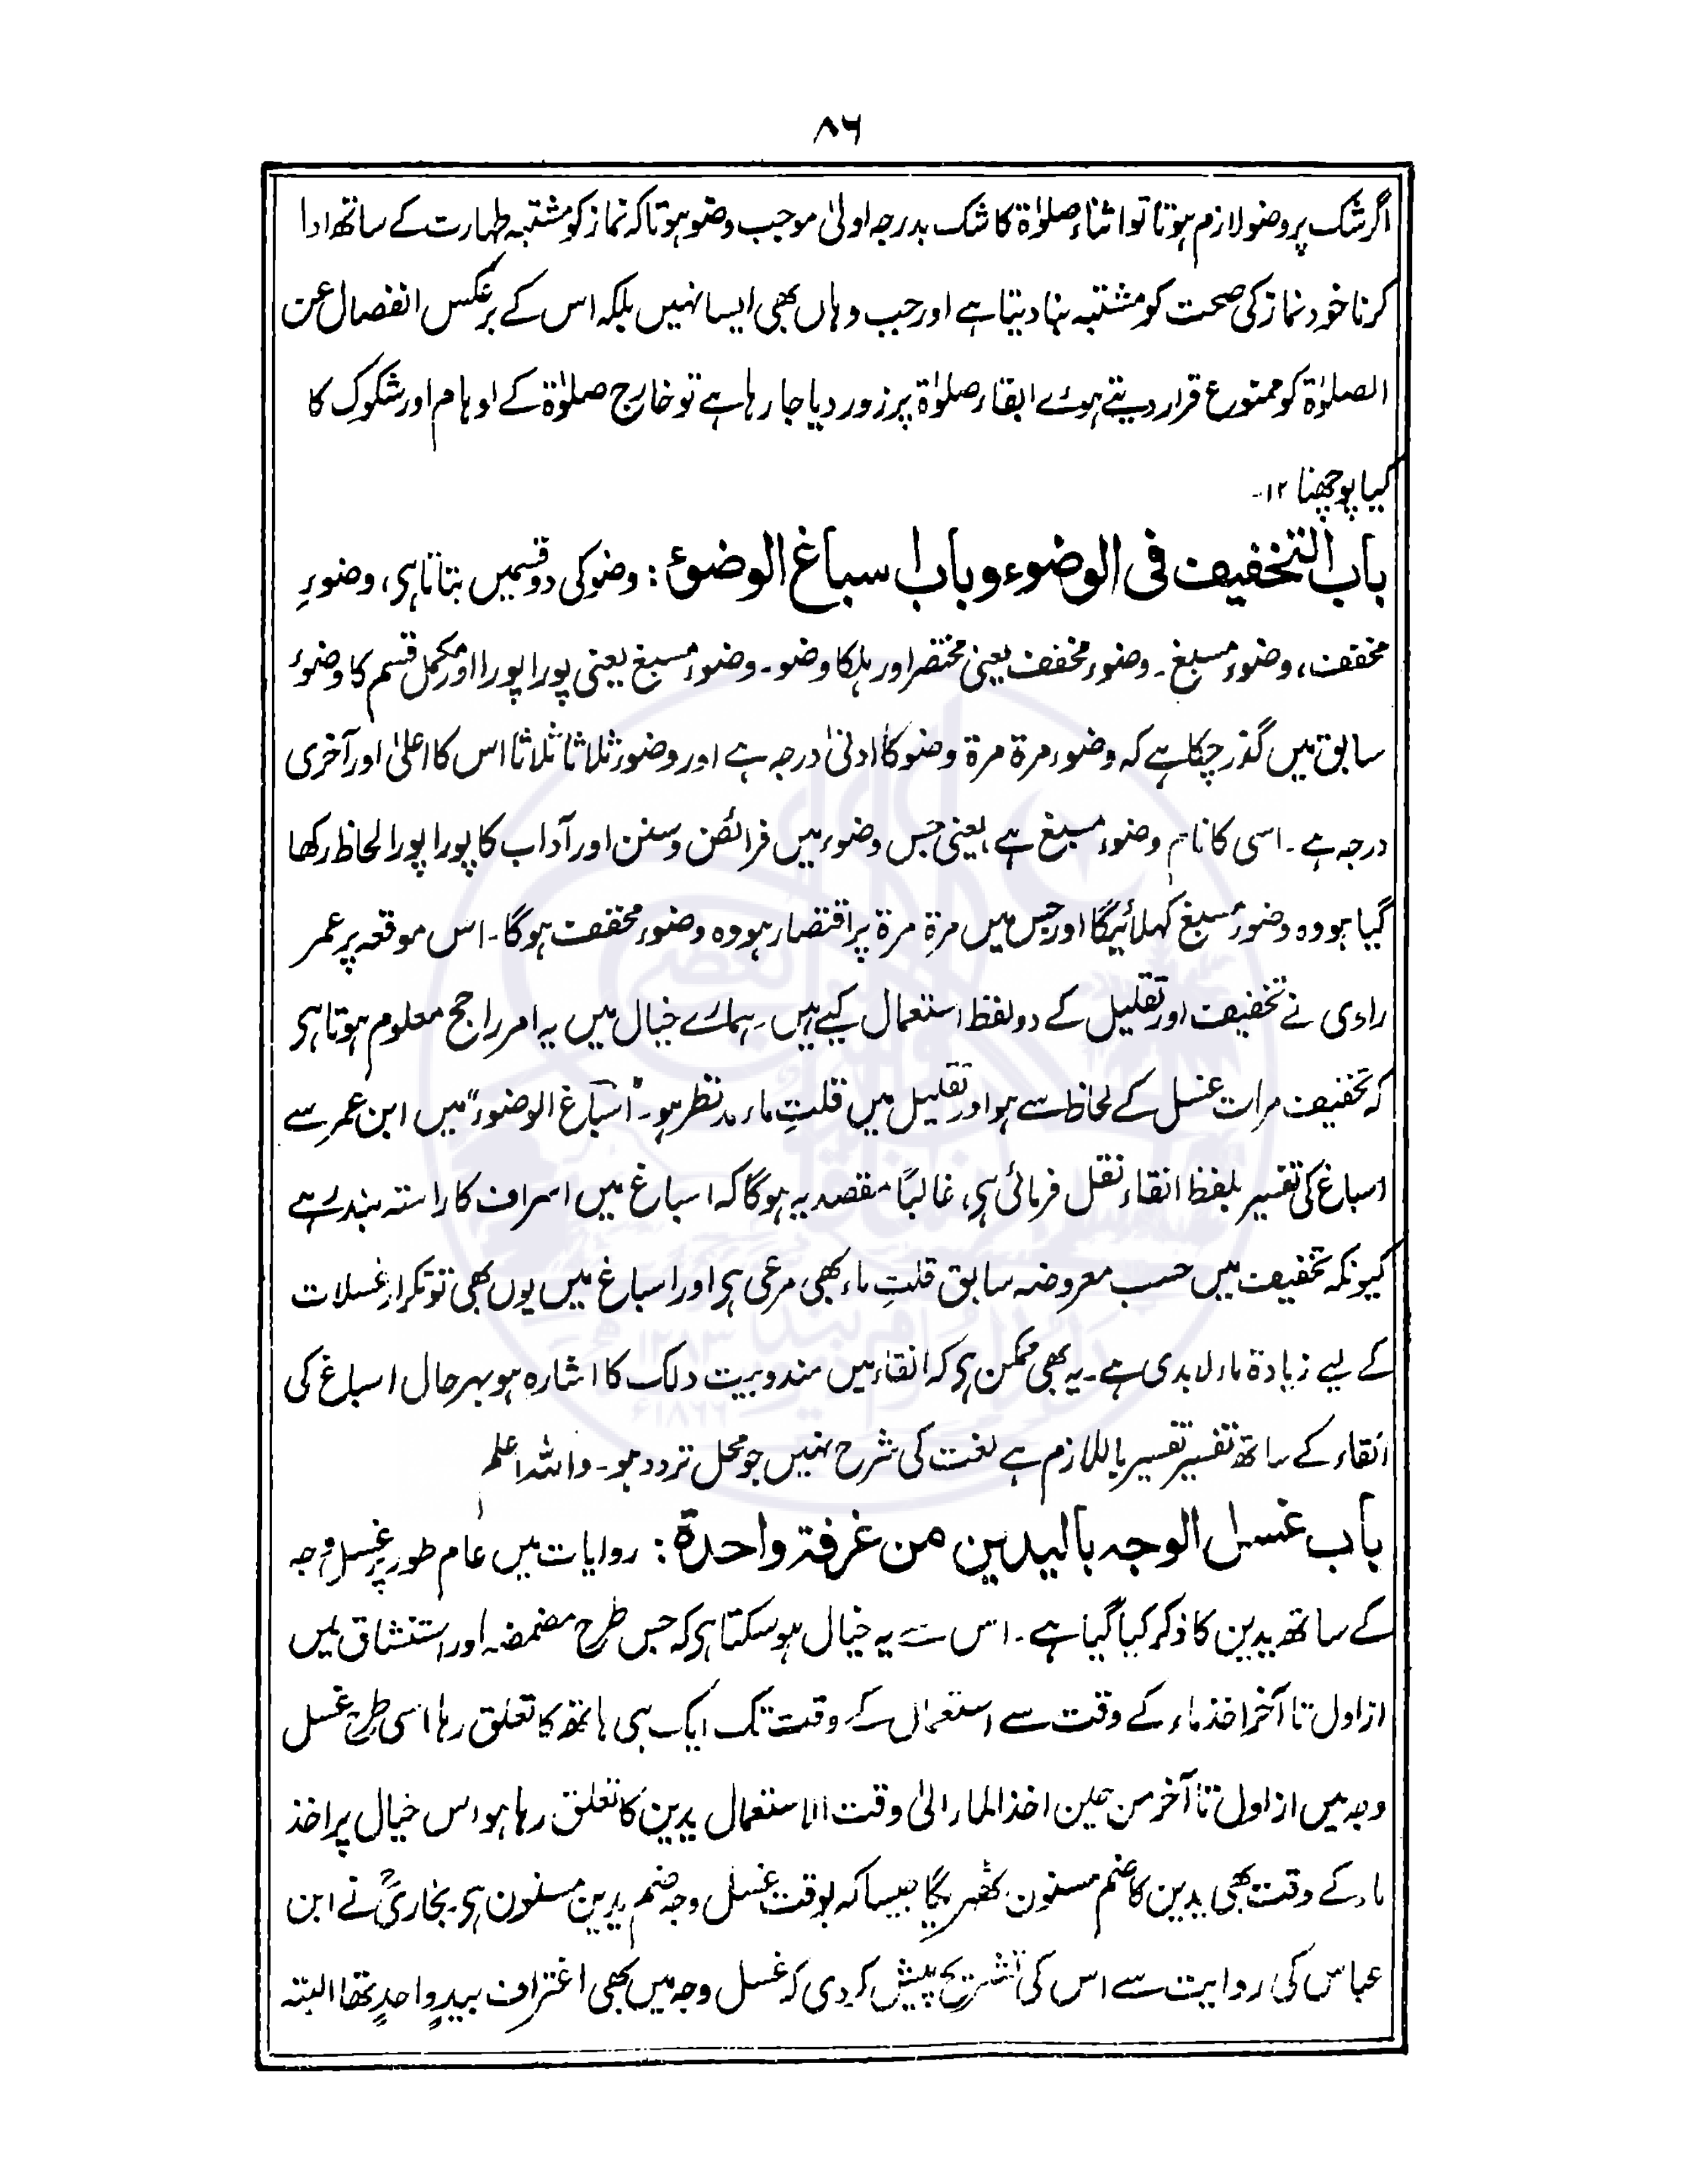 ۸۶
اگر شک پر وضو لازم ہوتا تو اثناء صلوٰۃ کا شک بدرجہ اولیٰ موجب وضو ہوتا کہ نماز کو مشتبہ طہارت کے ساتھ ادا
کرنا خود نماز کی صحت کو مشتبہ بنا دیتا ہے اور جب وہاں بھی ایسا نہیں بلکہ اس کے برعکس انفصال عن
الصلوٰۃ کو ممنوع قرار دیتے ہوئے ابقاء صلوٰۃ پر زور دیا جا رہا ہے تو خارج صلوٰۃ کے اوہام اور شکوک کا
کیا پوچھنا ۱۲۔
باب التخفیف فی الوضوء و باب اسباغ الوضوئ : وضو کی دو قسمیں بتاتا ہی، وضوء
مخفف، وضوء مسبغ۔ وضوء مخفف یعنی مختصر اور ہلکا وضو۔ وضوء مسبغ یعنی پورا پورا اور مکمل قسم کا وضوء
سابق میں گذر چکا ہے کہ وضوء مرۃ مرۃ وضو کا ادنیٰ درجہ ہے اور وضوء ثلاثا ثلاثا اس کا اعلیٰ اور آخری
درجہ ہے۔ اسی کا نام وضوء مسبغ ہے، یعنی جس وضوء میں فرائض و سنن اور آداب کا پورا پورا لحاظ رکھا
گیا ہو وہ وضوء مسبغ کہلائیگا اور جس میں مرۃ مرۃ پر اقتصار ہو وہ وضوء مخفف ہوگا۔ اس موقعہ پر عمر
راوی نے تخفیف اور تقلیل کے دو لفظ استعمال کیے ہیں۔ ہمارے خیال میں یہ امر راجح معلوم ہوتا ہی
کہ تخفیف مرات غسل کے لحاظ سے ہو اور تقلیل میں قلتِ ماء مد نظر ہو۔ "اسباغ الوضوء" میں ابن عمر سے
اسباغ کی تفسیر بلفظ انقاء نقل فرمائی ہی، غالباً مقصد یہ ہوگا کہ اسباغ میں اسراف کا راستہ بند رہے
کیونکہ تخفیف میں حسب معروضہ سابق قلتِ ماء بھی مرعی ہی اور اسباغ میں یوں بھی تو تکرار غسلات
کے لیے زیادۃ ماء لابدی ہے۔ یہ بھی ممکن ہی کہ انقاء میں مندوبیت دلک کا اشارہ ہو بہر حال اسباغ کی
انقاء کے ساتھ تفسیر تفسیر باللازم ہے لغت کی شرح نہیں جو محل تردد ہو۔ واللہ اعلم
باب غسل الوجہ بالیدین من غرفۃ واحدۃ : روایات میں عام طور پر غسل وجہ
کے ساتھ یدین کا ذکر کیا گیا ہے۔ اس سے یہ خیال ہو سکتا ہی کہ جس طرح مضمضہ اور استنشاق میں
از اول تا آخر اخذ ماء کے وقت سے استعمال کے وقت تک ایک ہی ہاتھ کا تعلق رہا اسی طرح غسل
وجہ میں از اول تا آخر من حین اخذ الماء الیٰ وقت الاستعمال یدین کا تعلق رہا ہو اس خیال پر اخذ
ماء کے وقت بھی یدین کا ضم مسنون ٹھہریگا جیسا کہ بوقت غسل وجہ ضم یدین مسنون ہی۔ بخاریؒ نے ابن
عباس کی روایت سے اس کی تشریح پیش کر دی کہ غسل وجہ میں بھی اغتراف بیدٍ واحدٍ تھا البتہ